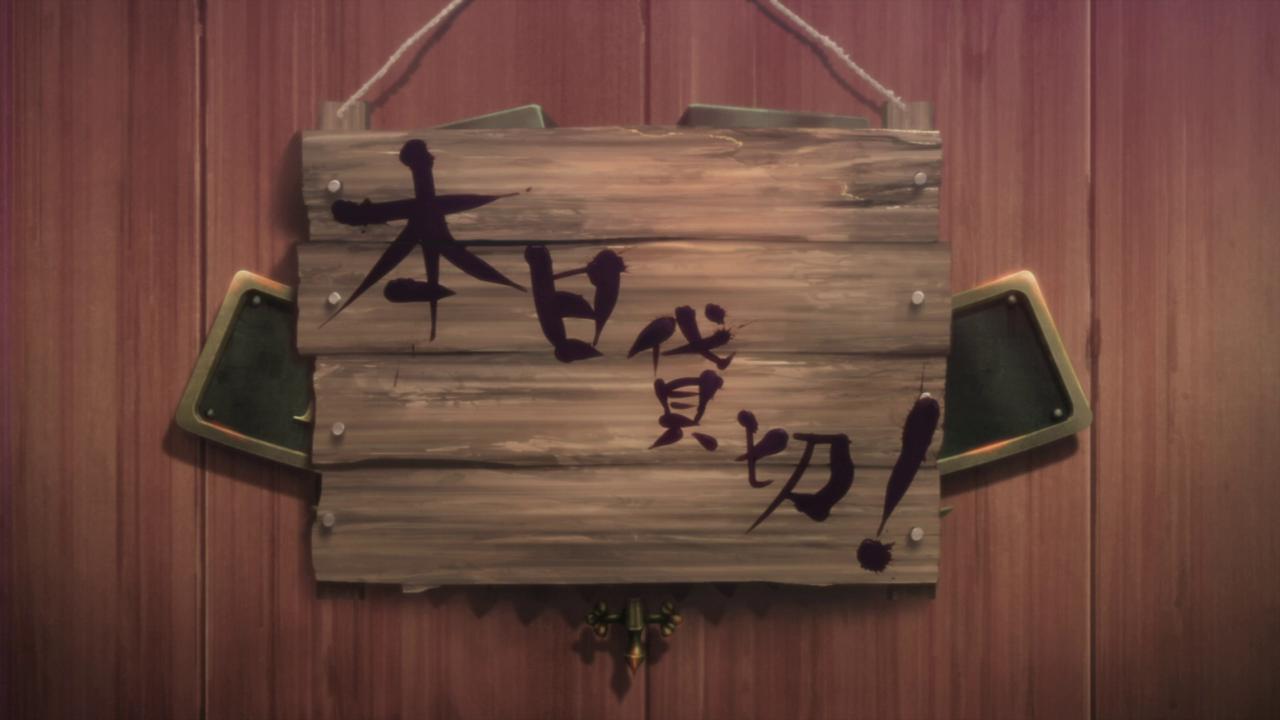 本日貸切!